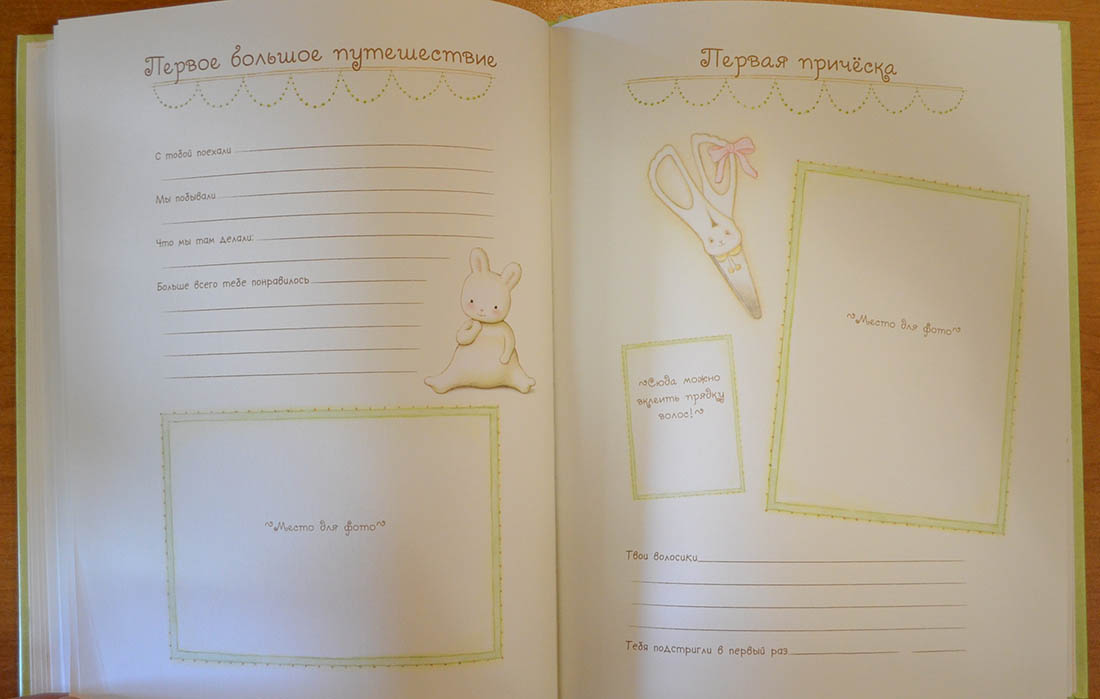 Первое большое путешествие
С тобой поехали
Мы побывали
Что мы там делали:
Больше всего тебе понравилось
~Место для фото~
Первая причёска
~Место для фото~
~Сюда можно
вклеить прядку
волос!~
Твои волосики
Тебя подстригли в первый раз